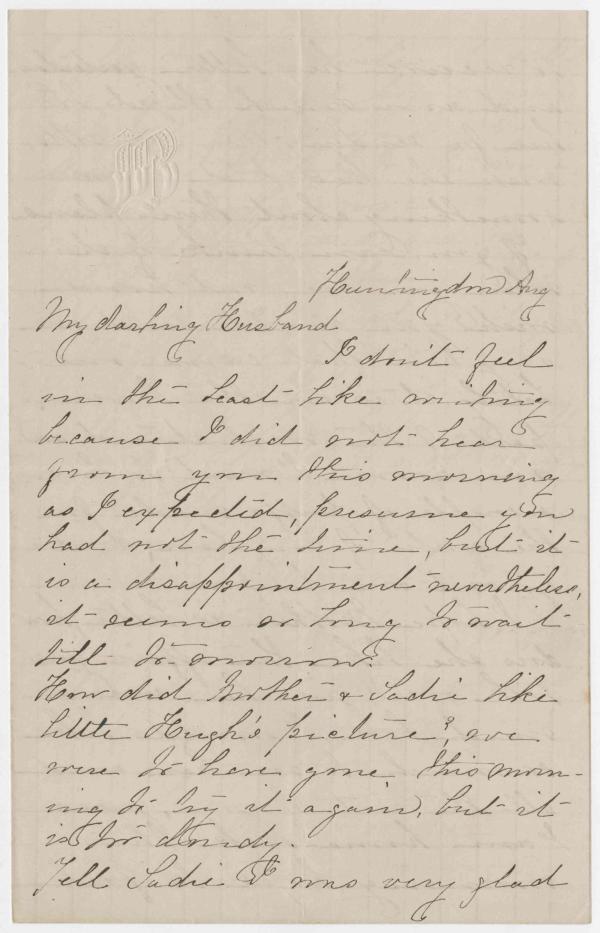 Huntingdon Aug
My darling Husband
I don't feel
in the least like writing
because I did not hear
from you this morning
as I expected, presume you
had not the time, but it
is a disappointment nevertheless,
it seems so long to wait
till to-morrow.
How did Mother & Sadie like
little Hugh's picture? we
were to have gone this morn-
ing to try it again, but it
is too cloudy.
Tell Sadie I was very glad